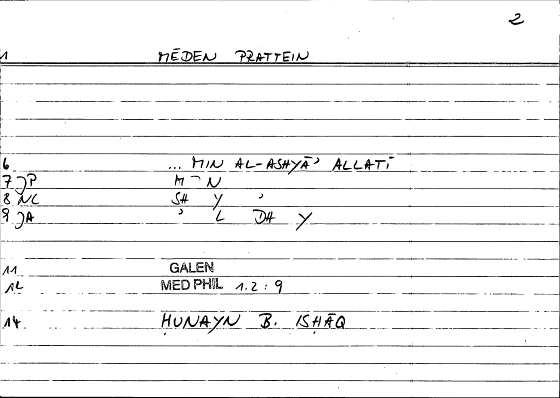 2
1 MĒDEN PRATTEIN
6 ... MIN AL-ASHYĀʾ ALLATĪ
7 JP M ¯ N
8 NC SH Y ʾ
9 JA ʾ L DH Y
11 GALEN
12 MED PHIL 1.2 : 9
14 ḤUNAYN B. ISḤĀQ